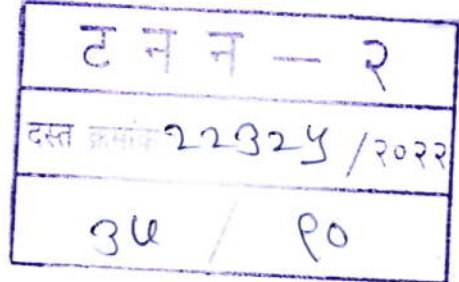 ट न न — २
दस्त क्रमांक २२३२५ / २०२२
३५ / ९०